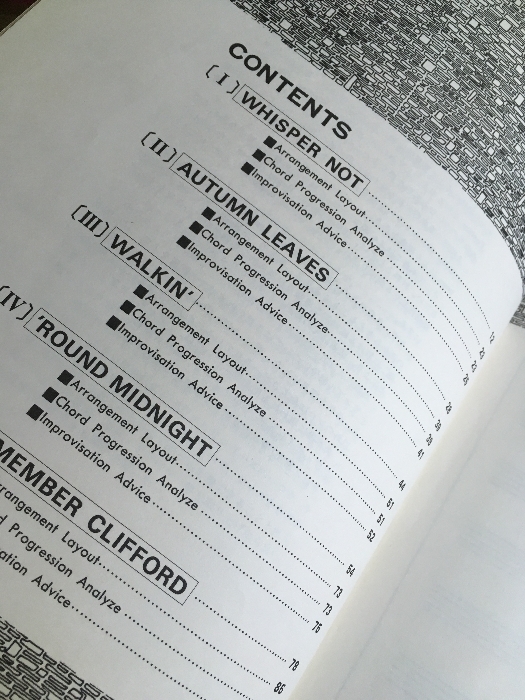 CONTENTS
(I) WHISPER NOT
■Arrangement Layout
■Chord Progression Analyze
■Improvisation Advice
(II) AUTUMN LEAVES
■Arrangement Layout
■Chord Progression Analyze
■Improvisation Advice
(III) WALKIN'
■Arrangement Layout 51
■Chord Progression Analyze 51
■Improvisation Advice 52
(IV) 'ROUND MIDNIGHT 54
■Arrangement Layout 73
■Chord Progression Analyze 73
■Improvisation Advice 75
MEMBER CLIFFORD 78
rangement Layout 85
Progression Analyze
ation Advice